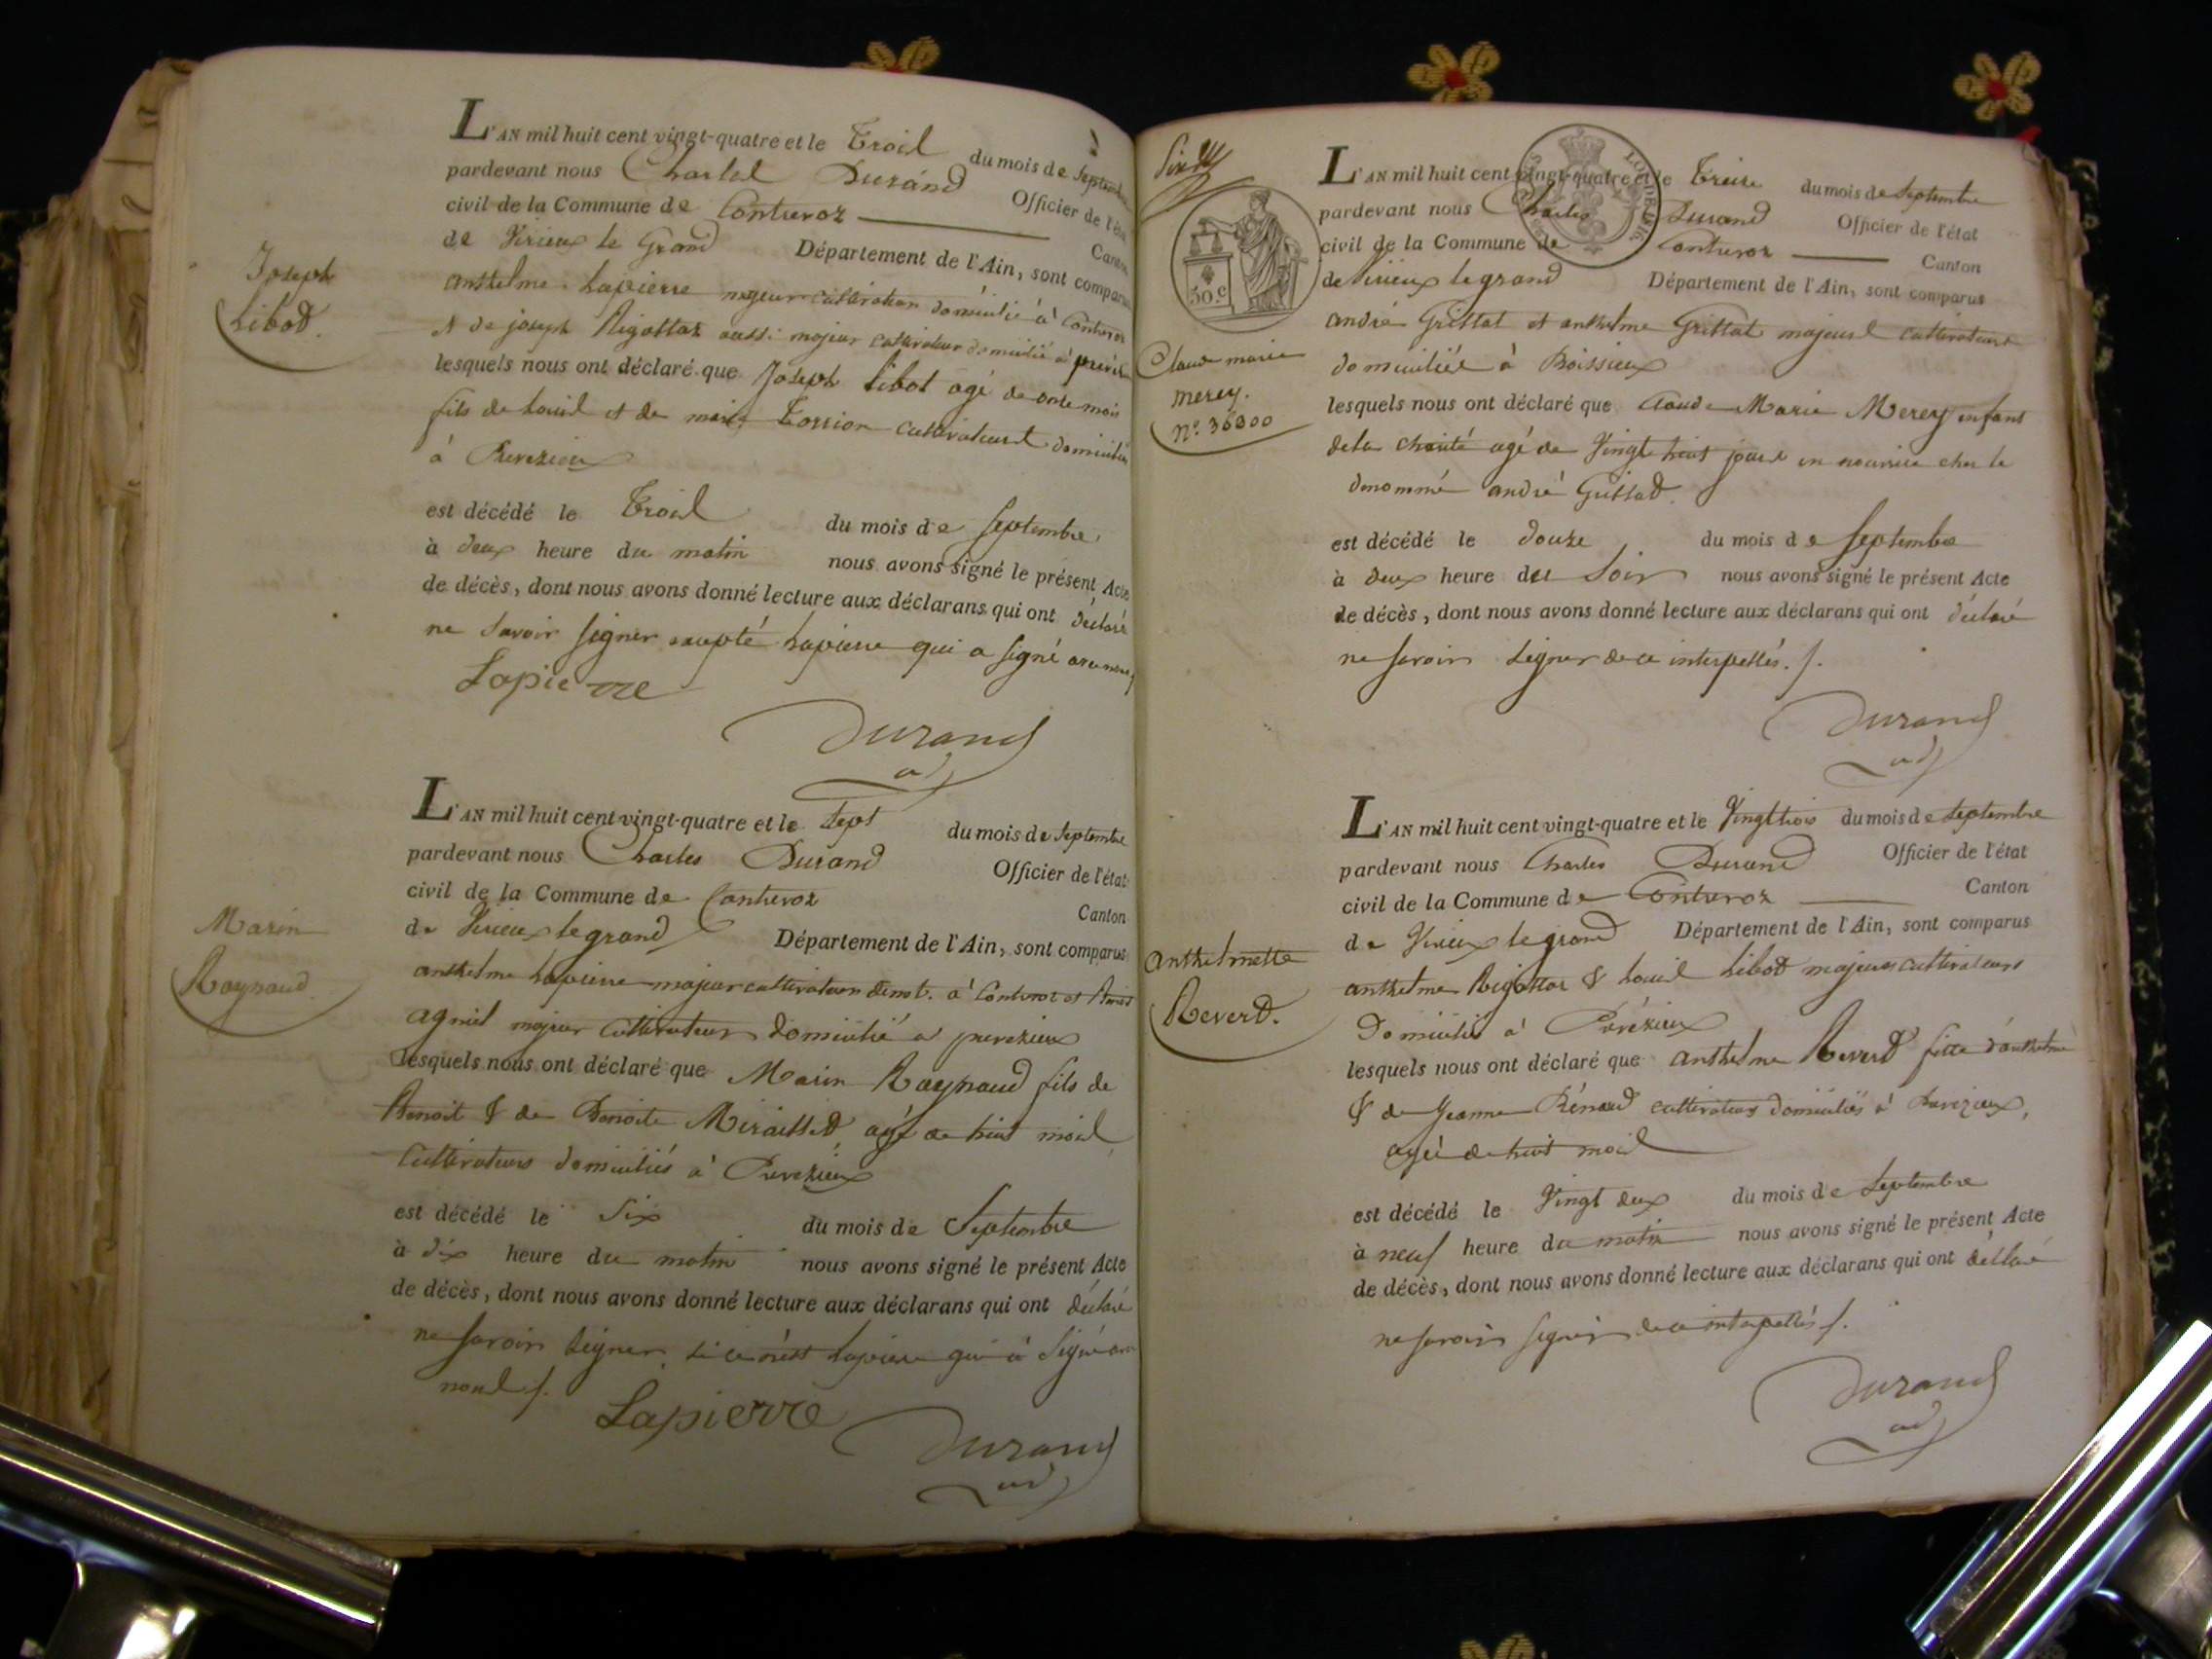 L'AN mil huit cent vingt-quatre et le troisl du mois de Septembre
pardevant nous Charles Durand Officier de l'état
civil de la Commune de Contrevoz Canton
de Virieux le Grand Département de l'Ain, sont comparus
anthelme Lapierre majeur cultivateur domicilié à Contrevoz
& de joseph Rigottaz aussi majeur cultivateur domicilié à
lesquels nous ont déclaré que Joseph Libod agé de onze mois
fils de Louis et de marie cultivateurs domiciliés
à Prevezieux
est décédé le trois du mois de Septembre
à deux heure du matin nous avons signé le présent Acte
de décès, dont nous avons donné lecture aux déclarans qui ont déclaré
ne Savoir signer excepté Lapierre qui a signé avec nous
Lapierre
Durand
adj
Joseph
Libod.
L'AN mil huit cent vingt-quatre et le Sept du mois de Septembre
pardevant nous Charles Durand Officier de l'état
civil de la Commune de Contrevoz Canton
de Virieux le grand Département de l'Ain, sont comparus
anthelme Lapierre majeur cultivateur domt. à Contrevoz et
agniel majeur cultivateur domicilié a prevezieux
lesquels nous ont déclaré que Marin Raynaud fils de
Benoit & de Benoite agé de huit mois
Cultivateurs domiciliés à Prevezieux
est décédé le Six du mois de Septembre
à dix heure du matin nous avons signé le présent Acte
de décès, dont nous avons donné lecture aux déclarans qui ont déclaré
ne Savoir Signer, si ce n'est Lapierre qui à Signé avec
nous /.
Lapierre
Durand
adj
Marin
Raynaud.
50.c
L'AN mil huit cent vingt-quatre et le treize du mois de Septembre
pardevant nous Charles Durand Officier de l'état
civil de la Commune de Contrevoz Canton
de Virieux le grand Département de l'Ain, sont comparus
andré Grittat et anthelme Grittat majeurs cultivateurs
domiciliés à Boissieux
lesquels nous ont déclaré que Claude Marie Merey enfant
de la charité agé de Vingt huit jours en nourrice chez le
denommé andré Grittat.
est décédé le douze du mois de Septembre
à deux heure du Soir nous avons signé le présent Acte
de décès, dont nous avons donné lecture aux déclarans qui ont déclaré
ne savoir Signer de ce interpellés. /.
Durand
adj
Claude marie
merey.
n°. 36300
L'AN mil huit cent vingt-quatre et le Vingt trois du mois de Septembre
pardevant nous Charles Durand Officier de l'état
civil de la Commune de Contrevoz Canton
de Virieux le grand Département de l'Ain, sont comparus
anthelme Rigottaz & Louis Libod majeurs cultivateurs
Domiciliés à Prévézieux
lesquels nous ont déclaré que anthelme Reverd fille d'anthelme
& de Jeanne Rénaud cultivateurs domiciliés à Prevezieux,
agée de huit mois
est décédé le Vingt deux du mois de Septembre
à neuf heure du matin nous avons signé le présent Acte
de décès, dont nous avons donné lecture aux déclarans qui ont déclaré
ne savoir signer de ce interpellés /.
Durand
adj
Anthelmette
Reverd.